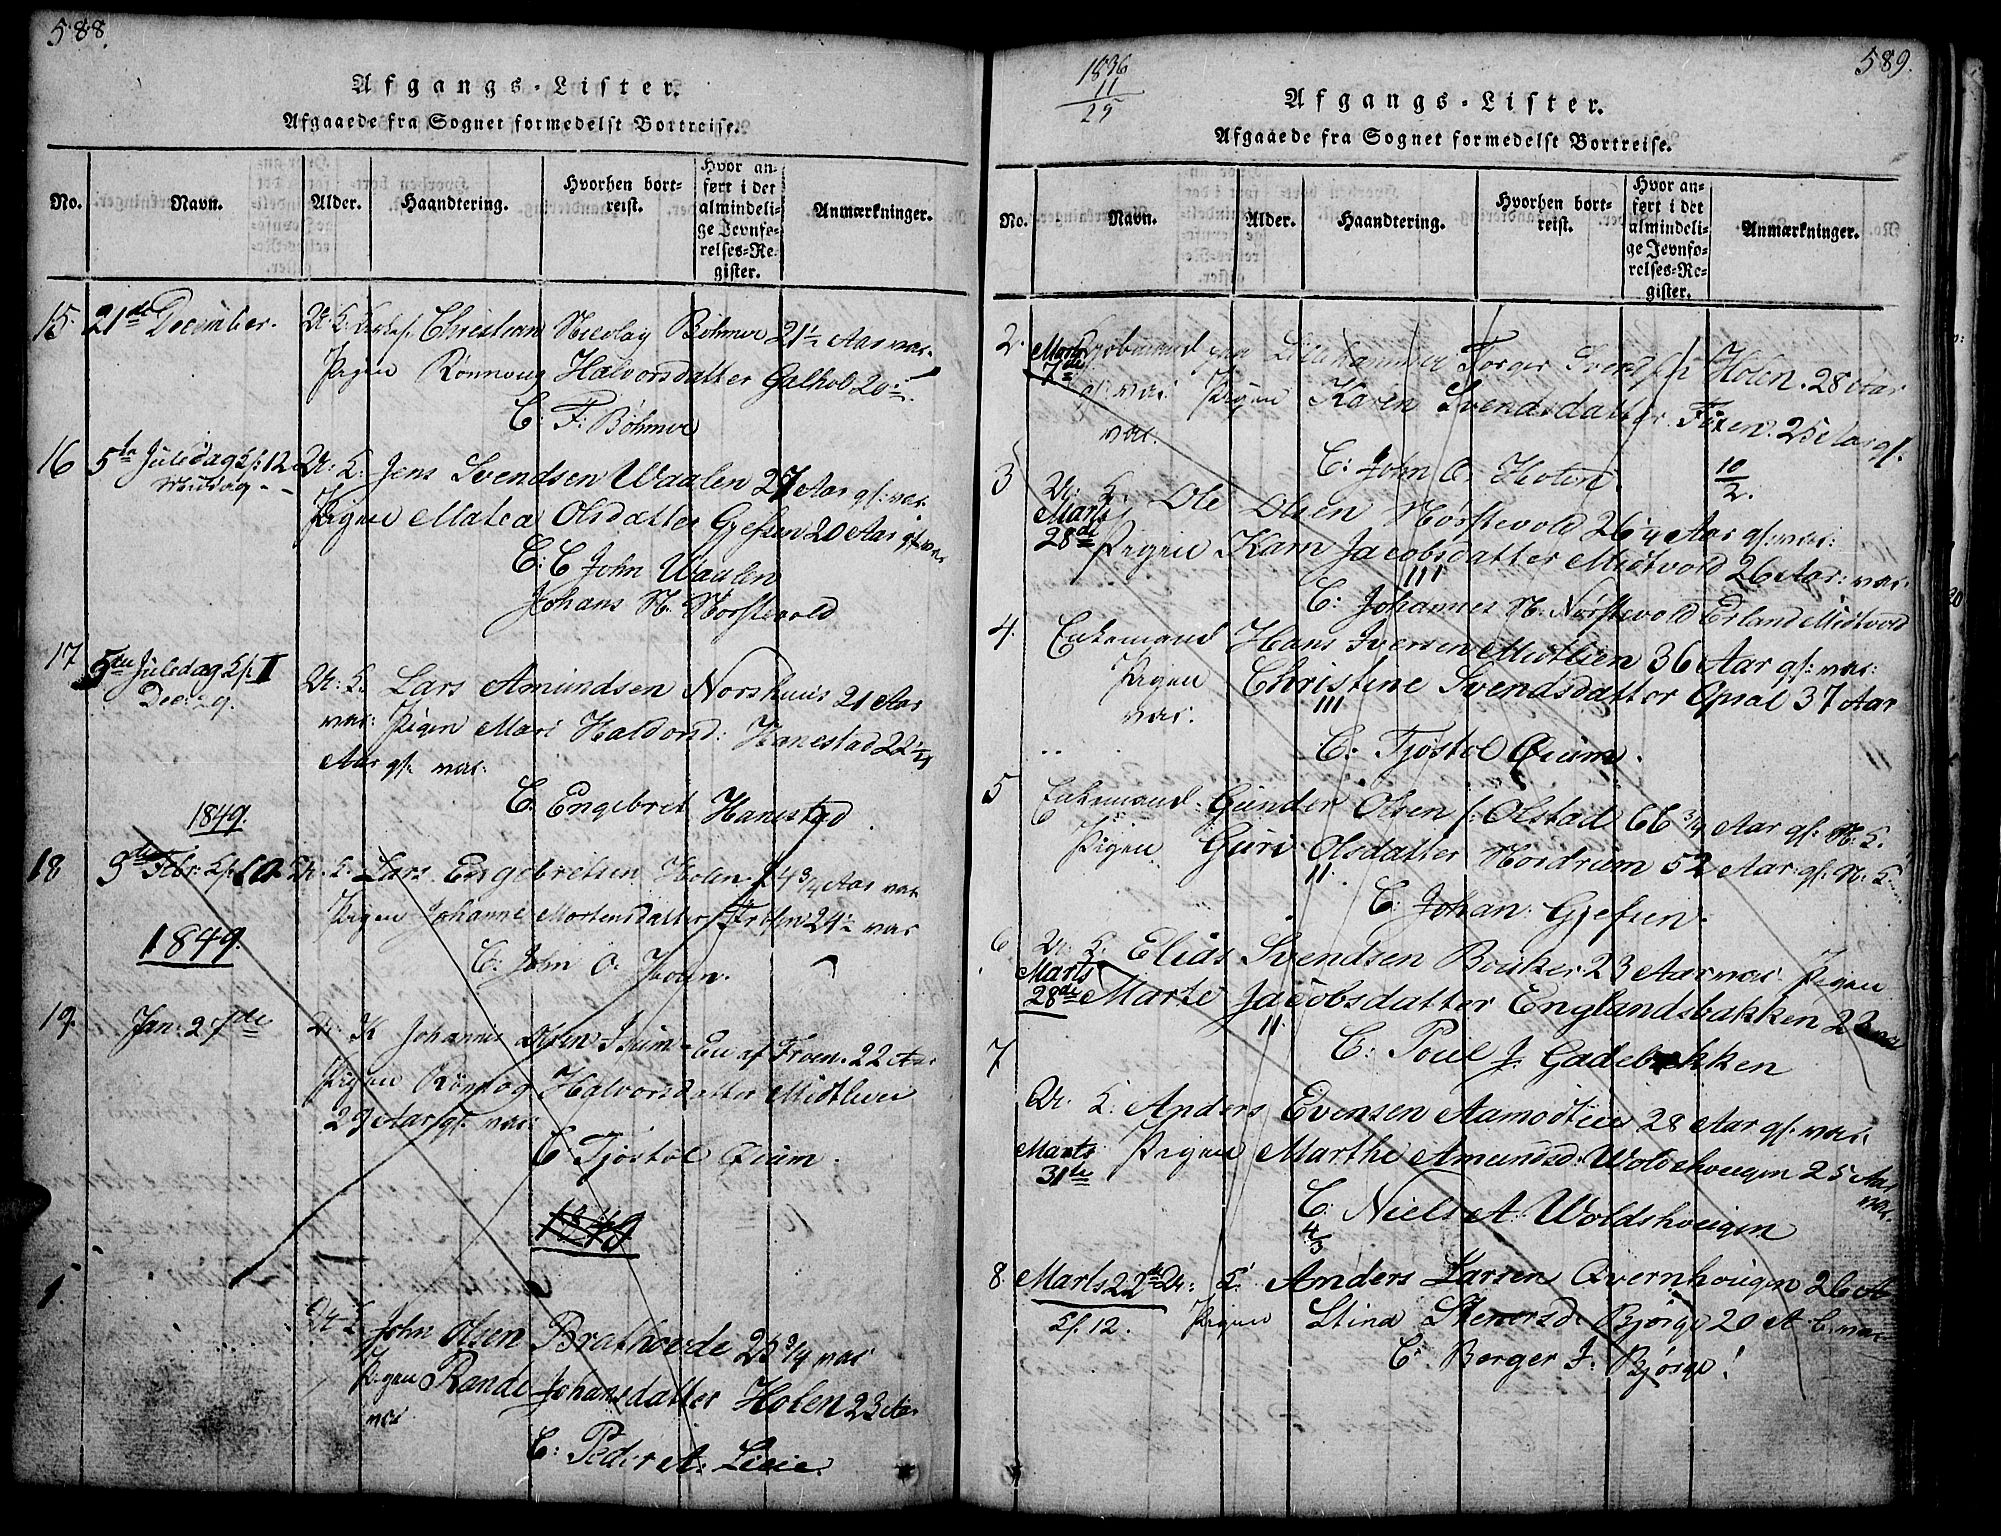 588.
Afgangs-Lister.
Afgaaede fra Sognet formedelst Bortreise.
No.
Navn.
Alder.
Haandtering.
Hvorhen bort-
reist.
Hvor an-
ført i det
almindeli-
ge Jevnfø-
relses-Re-
gister.
Anmærkninger.
15. 21de December. U: K: Christian Nicolay Bøhmer 21½ Aar vac.
Pigen Rønnoug Halvorsdatter Galhol 20
C: F: Bøhmer
16 5te Juledag Kl: 12 U: K: Jens Svendsen Waalen 27 Aar gl: vac.
Middag - - Pigen Matea Olsdatter Gjefsen 20 Aar gl: vac
C: C John Waalen
Johans N. Norstevold
17 5te Juledag Kl: 1
Dec: 29. U: K. Lars Amundsen Norshuus 21 Aar
vac: Pigen Mari Haldorsd: Hanestad 22¼
Aar gl: vac:
C: Engebret Hanestad.
1849.
18 9de Febr: Kl: 10 U: K: Lars Engebretsen Holen 24¾ Aar vac
Pigen Johanne Mortensdatter 24½ vac
1849.
C: John O. Holen.
19. Jan: 27de U: K Johannes Olsen En af Froen. 22 Aar
Pigen Halvorsdatter Midtlien
29 Aar gl: vac:
C Tjøstol Qvium.
1849
1. U: K John Olsen Brathorde 23¾ vac
Pigen Rande Johansdatter Holen 23 Aar
vac
C: Peder A: Lieie.
1836
11
25
589.
Afgangs-Lister.
Afgaaede fra Sognet formedelst Bortreise.
No.
Navn.
Alder.
Haandtering.
Hvorhen bort-
reist.
Hvor an-
ført i det
almindeli-
ge Jevnfø-
relses-Re-
gister.
Anmærkninger.
2. Marts 7de Lillehammer Torger Svends: Holen. 28 Aar
gl: vac: Pigen Karen Svendsdatter Foxen. 25 Aar gl.
vac.
C: John O. Holen. 10/2.
3 U: K: Ole Olsen Norstevold 26¼ Aar gl: vac:
Marts 28de Pigen Kari Jacobsdatter Midtvold 26 Aar: vac.
III
C: Johannes N: Nørstevold Erland Midtvold
4. Enkemand Hans Iversen Midtlien 36 Aar gl: vac:
Pigen Christine Svendsdatter Opsal 37 Aar
vac. III
C: Tjøstol Qvium.
5 Enkemand Gunder Olsen Olstad 66¾ Aar gl: N: K.
Pigen Guri Olsdatter Nordrum 52 Aar gl: N: K.
II
C: Johan: Gjefsen.
6 U: K. Elias Svendsen Bakker 23 Aar vac: Pigen
Marts
28de Marte Jacobsdatter Englandsbakken 22
II
C: Poul J: Gadebakken
7
U: K: Anders Evensen Aamodtlien 28 Aar gl. vac.
Marts
31te Pigen Marthe Amundsd: Woldshougen 25 Aar
vac.
C: Niels A: Woldshougen
4/3
8. Marts 22de U: K: Anders Larsen Qvernhougen 26 A
Kl. 12. Pigen Stina Stenersd: Bjørge 20 A vac
C: Berger J: Bjørge!